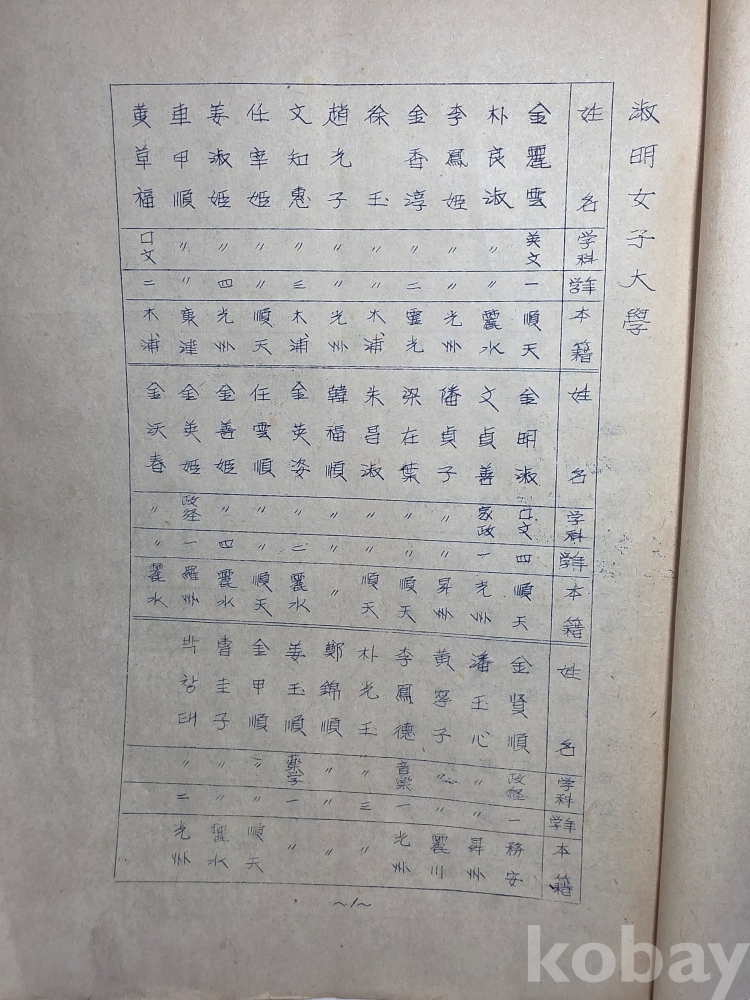 淑明女子大學
姓名 学科 学年 本籍
金麗雲 英文 一 順天
朴良淑 〃 〃 麗水
李鳳姬 〃 〃 光州
金香淳 〃 二 靈光
徐玉 〃 〃 木浦
趙光子 〃 〃 光州
文知惠 〃 三 木浦
任宰姬 〃 〃 順天
姜淑姬 〃 四 光州
車甲順 〃 〃 康津
黃草福 口文 二 木浦
姓名 学科 学年 本籍
金明淑 口文 四 順天
文貞善 家政 一 光州
潘貞子 〃 〃 昇州
梁在葉 〃 〃 順天
朱昌淑 〃 〃 順天
韓福順 〃 〃 〃
金英姿 〃 二 麗水
任雲順 〃 〃 順天
金善姬 〃 四 麗水
金英姬 政経 一 羅州
金沃春 〃 〃 麗水
姓名 学科 学年 本籍
金賢順 政経 一 務安
潘玉心 〃 〃 昇州
黃寧子 〃 〃 麗川
李鳳德 音楽 一 光州
朴光玉 〃 三 〃
鄭錦順 〃 〃 〃
姜玉順 薬学 一 〃
金甲順 〃 〃 順天
曺圭子 〃 〃 麗水
박창태 〃 二 光州
~1~
kobay